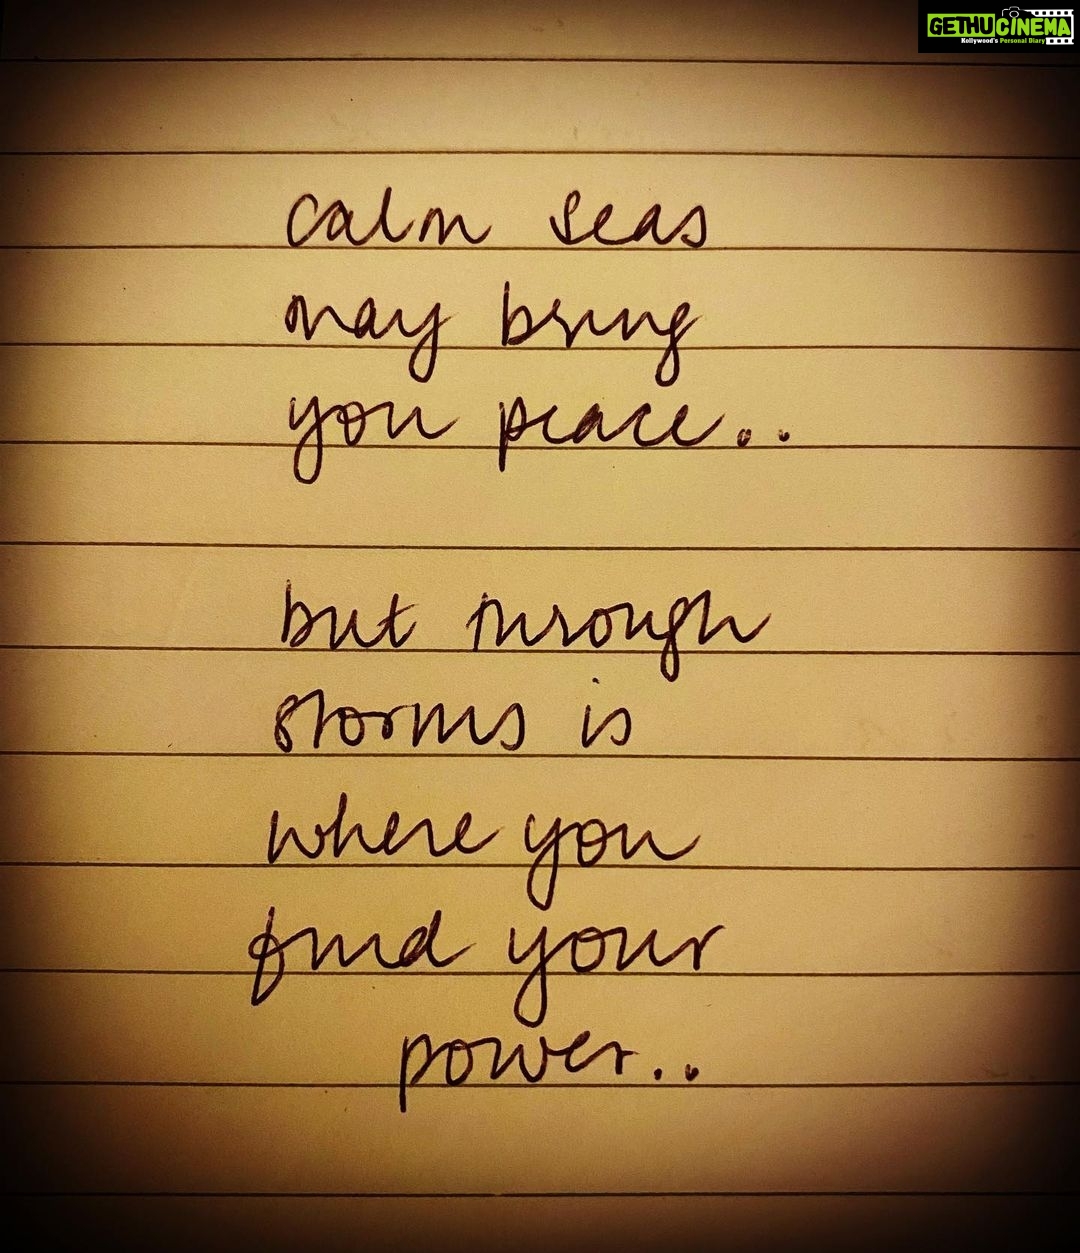 GETHUCINEMA
Kollywood's Personal Diary
calm seas
may bring
you peace..
but through
storms is
where you
find your
power..